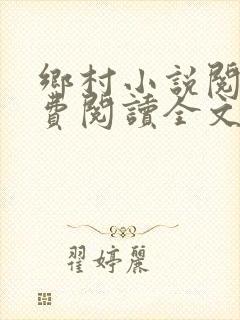 鄉村小說閱
費閱讀全文
翟婷麗